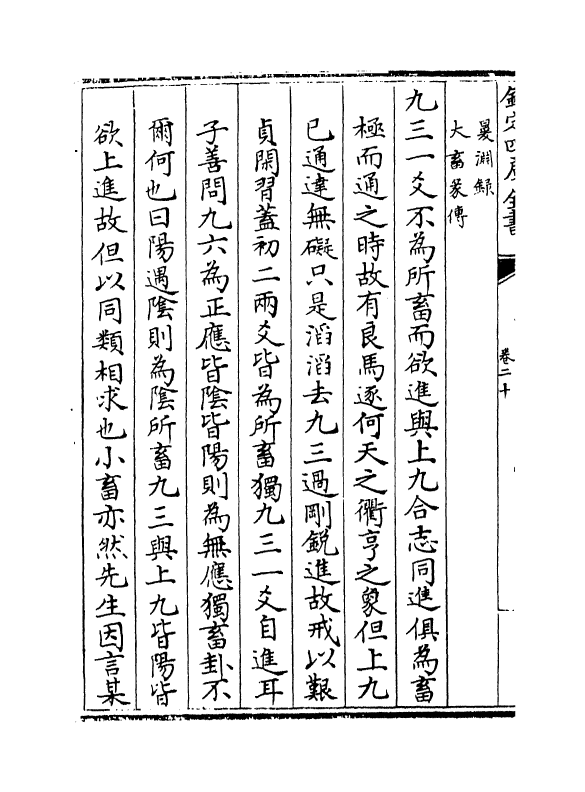 欽定四庫全書
卷二十
㬊淵録
大畜彖傳
九三一爻不為所畜而欲進與上九合志同進俱為畜
極而通之時故有良馬逐何天之衢亨之象但上九
已通違無礙只是滔滔去九三過剛銳進故戒以艱
貞閑習蓋初二兩爻皆為所畜獨九三一爻自進耳
子善問九六為正應皆陰皆陽則為無應獨畜卦不
爾何也曰陽遇陰則為陰所畜九三與上九皆陽皆
欲上進故但以同類相求也小畜亦然先生因言某